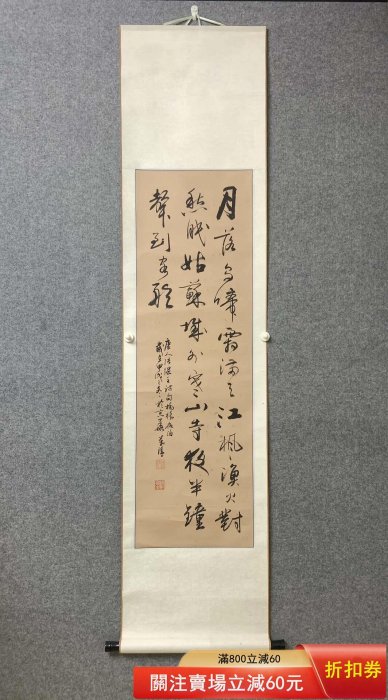 月落烏啼霜滿天江楓漁火對
愁眠姑蘇城外寒山寺夜半鐘
聲到客船
唐人張繼之詩句楓橋夜泊
滿800立減60
關注賣場立減60元
折扣券